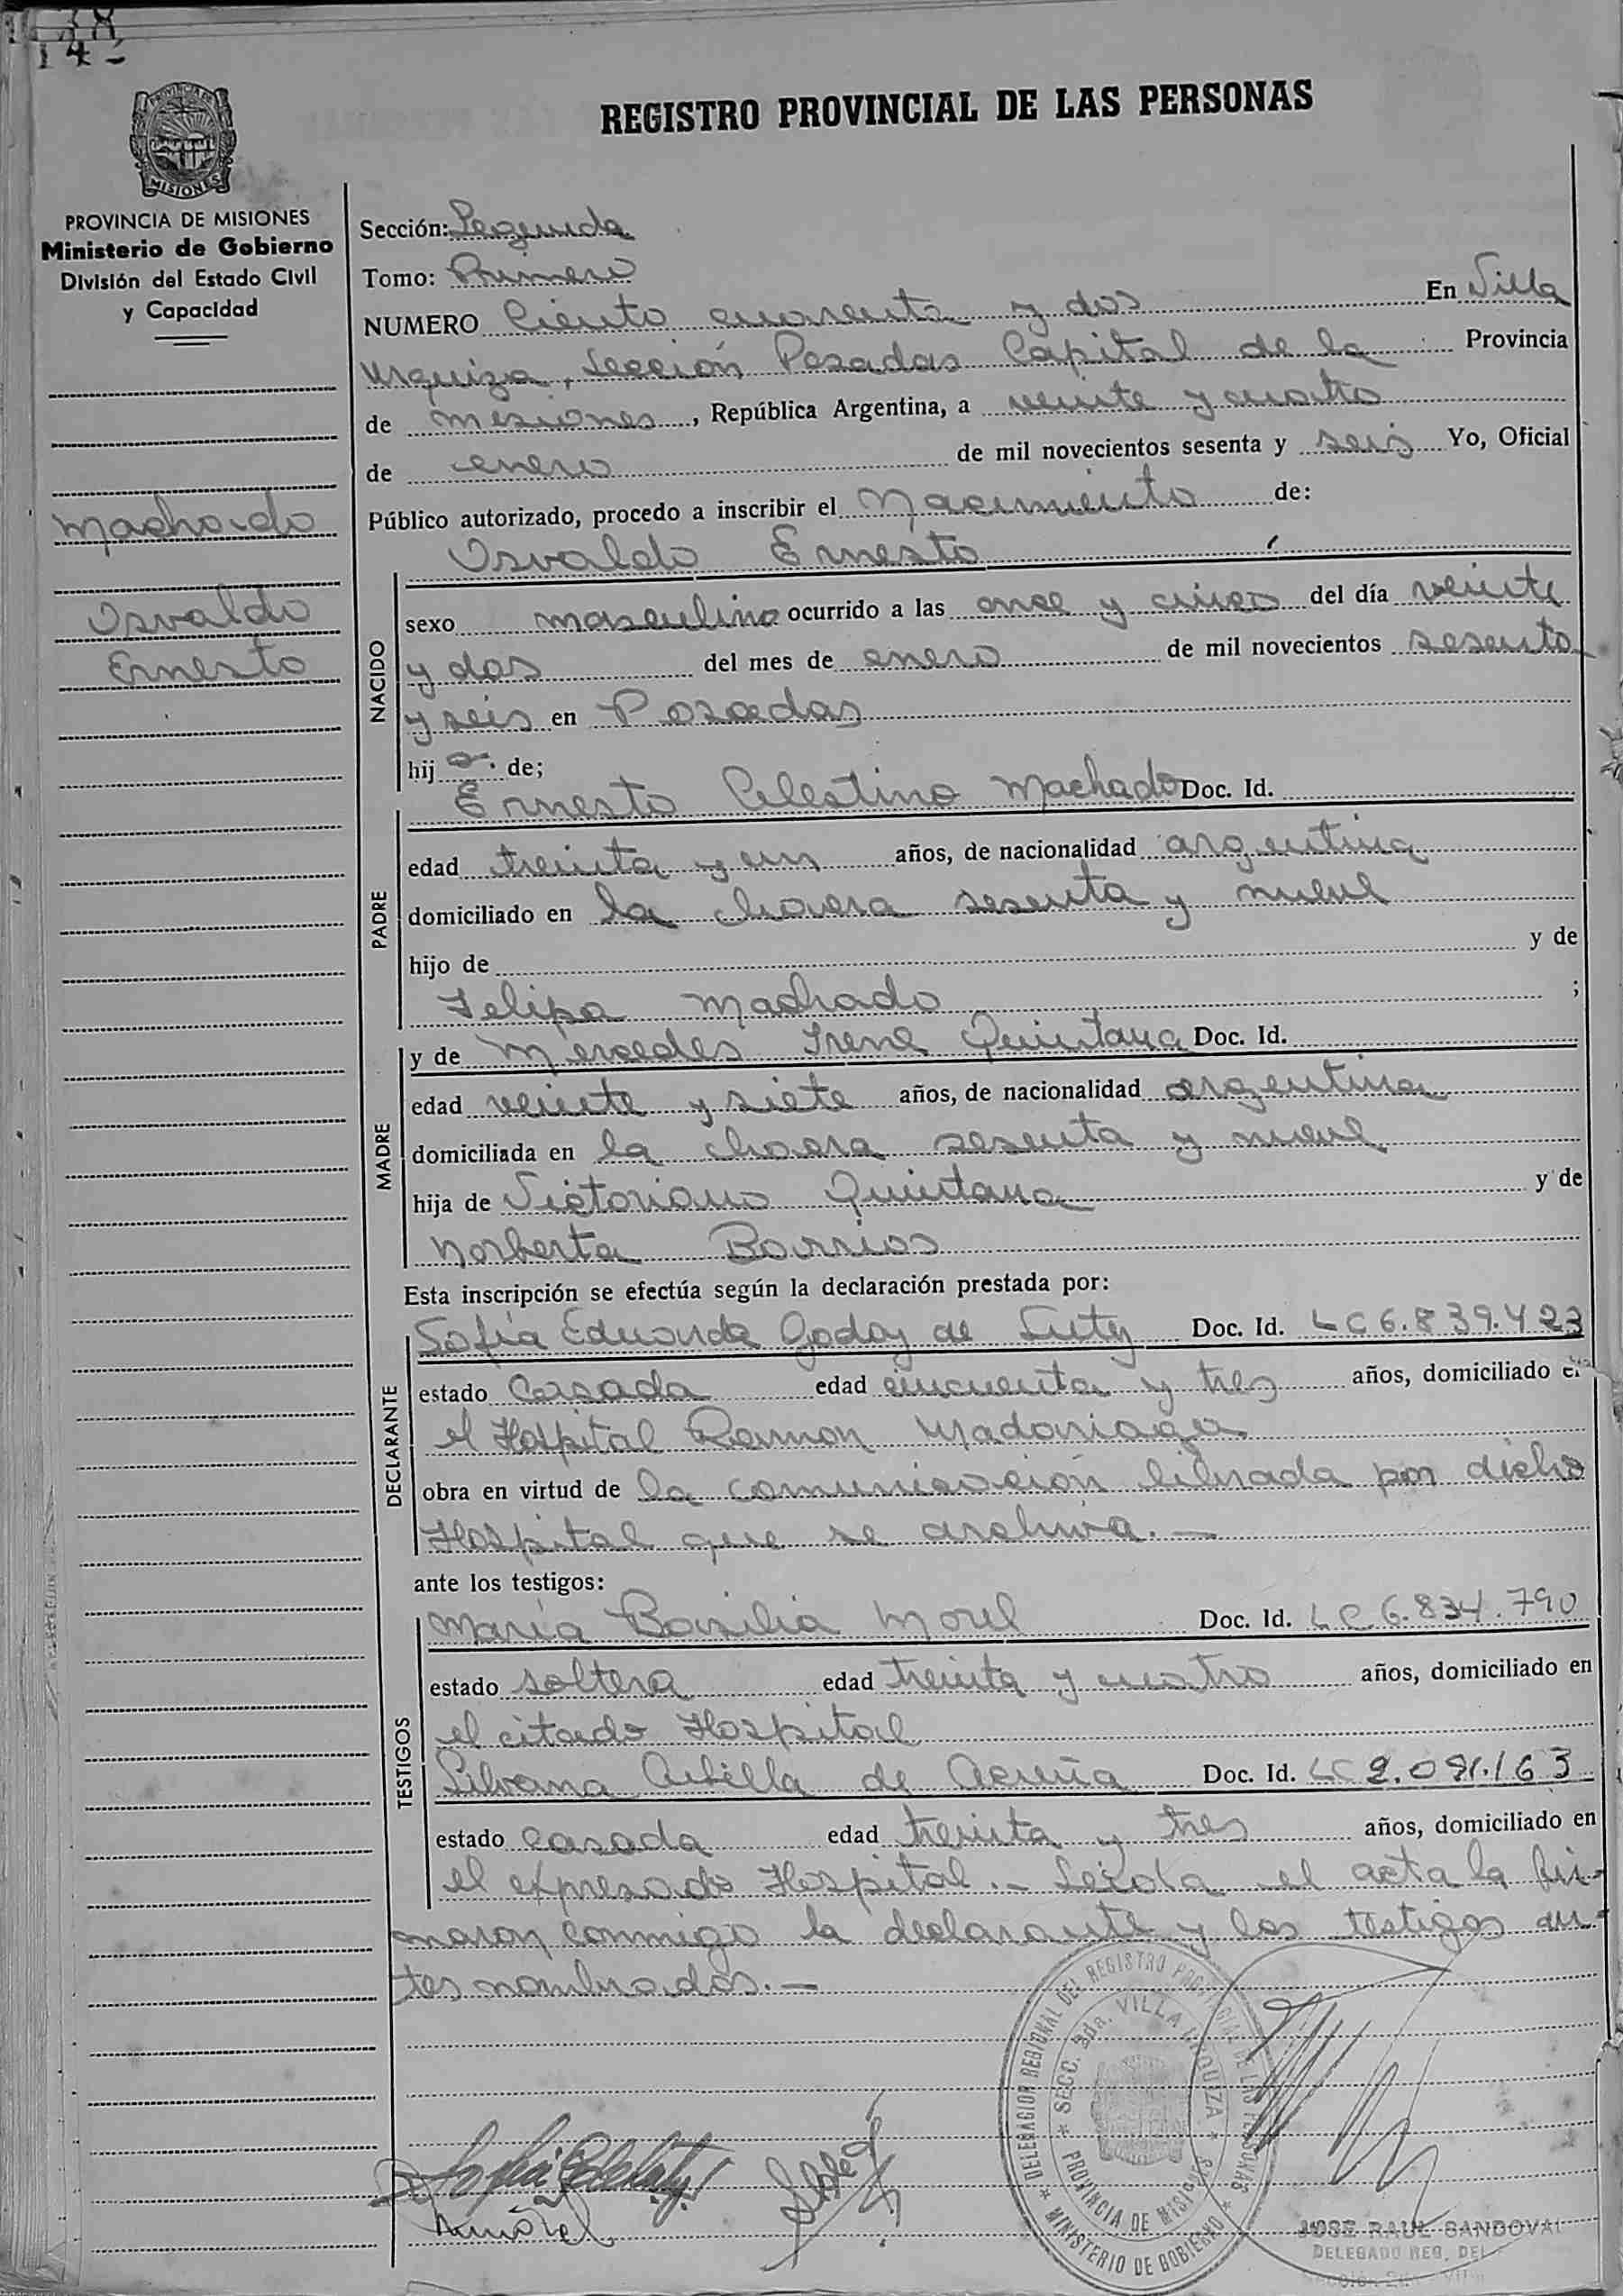 142
REGISTRO PROVINCIAL DE LAS PERSONAS
MISIONES
PROVINCIA DE MISIONES
Ministerio de Gobierno
División del Estado Civil
y Capacidad
Machado
Osvaldo
Ernesto
Sección: Segunda
Tomo: Primero
NUMERO Ciento cuarenta y dos En Villa
Urquiza, Sección Posadas Capital de la Provincia
de Misiones, República Argentina, a veinte y cuatro
de enero de mil novecientos sesenta y seis Yo, Oficial
Público autorizado, procedo a inscribir el Nacimiento de:
Osvaldo Ernesto
NACIDO
sexo masculino ocurrido a las once y cinco del día veinte
y dos del mes de enero de mil novecientos sesenta
y seis en Posadas
hijo de;
PADRE
Ernesto Celestino Machado Doc. Id.
edad treinta y un años, de nacionalidad argentina
domiciliado en la chacra sesenta y nueve
hijo de y de
Felipa Machado ;
MADRE
y de Mercedes Irene Quintana Doc. Id.
edad veinte y siete años, de nacionalidad argentina
domiciliada en la chacra sesenta y nueve
hija de Victoriano Quintana y de
Norberta Barrios
Esta inscripción se efectúa según la declaración prestada por:
DECLARANTE
Sofía Eduarda Godoy de Luty Doc. Id. LC 6.839.423
estado Casada edad cincuenta y tres años, domiciliado en
el Hospital Ramon Madariaga
obra en virtud de la comunicación librada por dicho
Hospital que se archiva.—
ante los testigos:
TESTIGOS
María Basilia Morel Doc. Id. LC 6.834.790
estado soltera edad treinta y cuatro años, domiciliado en
el citado Hospital
Silvana de Acuña Doc. Id. LC 2.091.163
estado casada edad treinta y tres años, domiciliado en
el expresado Hospital.— Leida el acta la fir-
maron conmigo la declarante y los testigos an-
tes nombrados.—
DELEGACION REGIONAL DEL REGISTRO PROVINCIAL DE LAS PERSONAS
SECC. 2da. VILLA URQUIZA
PROVINCIA DE MISIONES
MINISTERIO DE GOBIERNO
JOSE RAUL SANDOVAL
DELEGADO REG. DEL